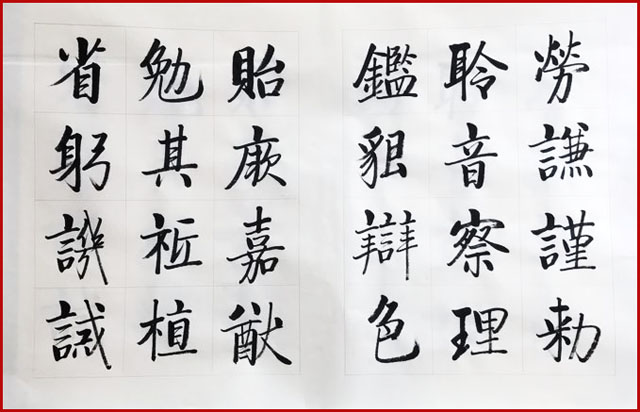 勞謙謹勅
聆音察理
鑑貌辯色
貽厥嘉猷
勉其祗植
省躬譏誡